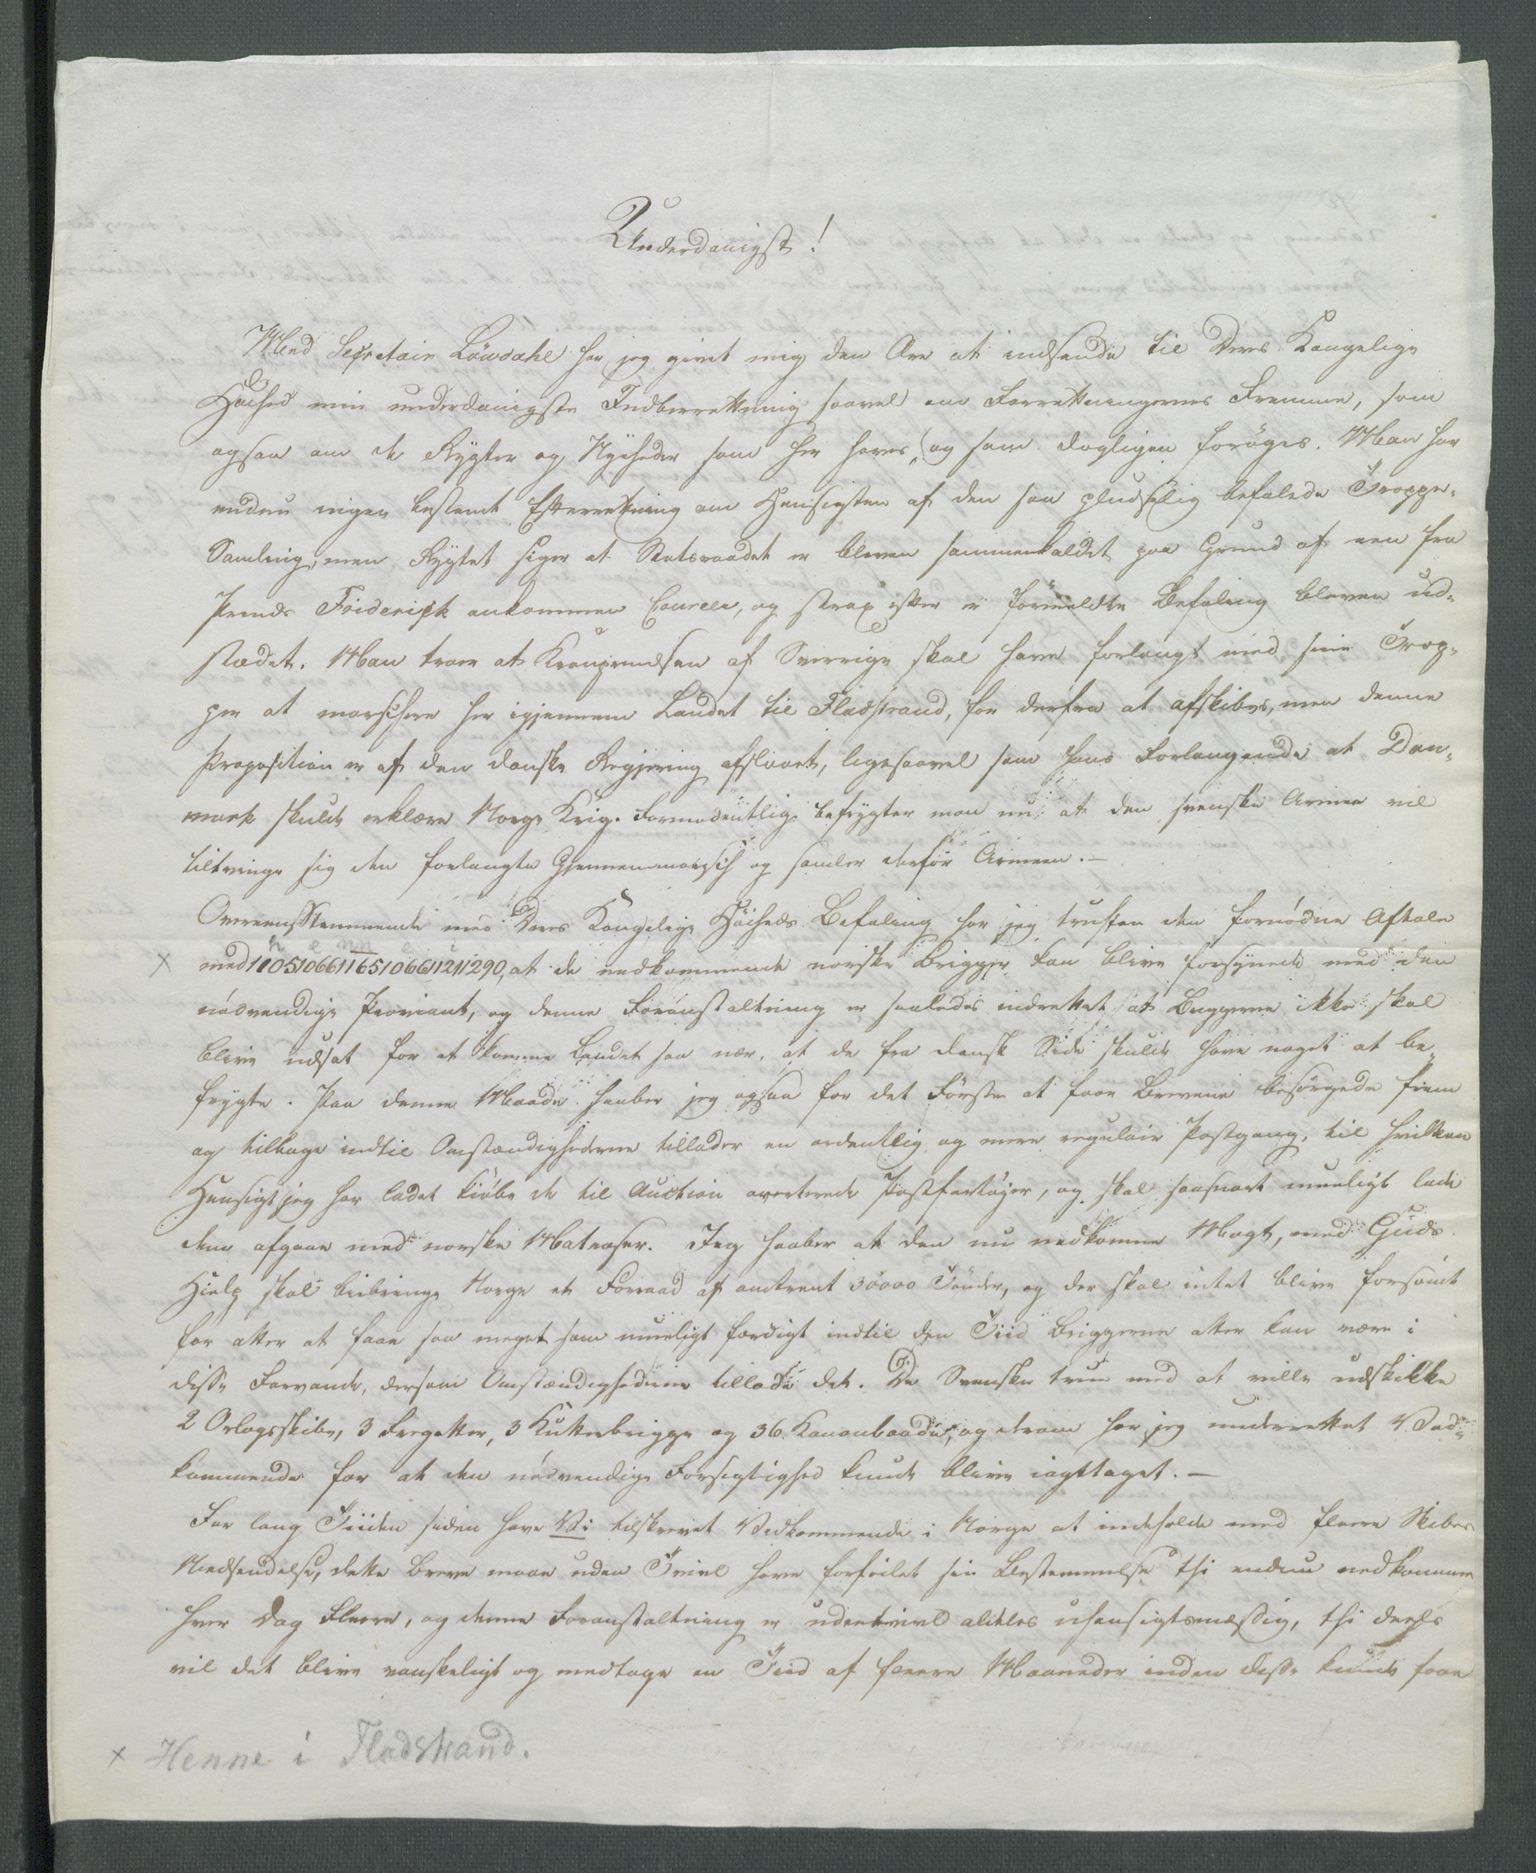 Underdanigst!
Med Secretair Löwdahl har jeg givet mig den Ære at indsende til Deres Kongelige
Höihed min underdanigste Indberettning saavel om Forrettningernes Fremme, som
ogsaa om de Rygter og Nyeheder som her haves, og som dagligen foröges. Man har
endnu ingen bestemt Efterrettning om Hensigten af den saa pludselig befalede Troppe-
Samling, men Rygtet siger at Statsraadet er bleven sammenkaldet paa Grund af een fra
Prinds Friderich ankommen Courer, og strax efter er formeldte Befaling bleven ud-
stædet. Man troer at Kronprindsen af Sverrige skal have forlangt med sine Trop-
per at marschere her igjennem Landet til Fladstrand, for derfra at afskibes, men denne
Proposition er af den danske Regjering afslaaet, ligesaavel som hans Forlangende at Dan-
mark skulde erklære Norge Krig. Formodentlig befrygter man nu, at den svenske Armee vil
tiltvinge sig den forlangte Gjennemmarsch og samler derfor Armeen. —
Overeensstemmende med Deres Kongelige Höiheds Befaling har jeg truffen den fornödne Aftale
med 110510661165106611211290, at de nedkommende norske Brigger kan blive forsynede med den
nödvendige Proviant, og denne Foranstaltning er saaledes indrettet at Briggerne ikke skal
blive udsat for at komme Landet saa nær, at de fra dansk Side skulde have noget at be-
frygte. Paa denne Maade haaber jeg ogsaa for det Förste at faae Brevene besörgede frem
og tilbage indtil Omstændighederne tillader en ordentlig og mere regulair Postgang, til hvilken
Hensigt jeg har ladet kiöbe de til Auction averterede Postfartöyer, og skal saasnart mueligt lade
dem afgaae med norske Matroser. Jeg haaber at den nu nedkomne Magt, med Guds
Hielp skal bibringe Norge et Forraad af omtrent 30000 Tönder, og der skal intet blive forsömt
for atter at faae saa meget som mueligt færdigt indtil den Tiid Briggerne atter kan være i
disse Farvande, dersom Omstændighederne tillade det. De Svenske true med at ville udskikke
2 Orlogsskibe, 3 Fregatter, 3 Kutterbrigge og 36 Kanonbaade, og derom har jeg underrettet Ved-
kommende for at den nödvendige Forsigtighed kunde blive iagttaget. —
For lang Tiiden siden have Vi tilskrevet Vedkommende i Norge at indeholde med flere Skibes
Nedsendelse, dette Brev maae uden Tvivl have forfeilet sin Bestemmelse thi endnu nedkomme
hver Dag Flere, og denne Foranstaltning er udentvivl aldeles uhensigtsmæssig, thi deels
vil det blive vanskeligt og medtage en Tiid af flere Maaneder inden disse kunde faae
x Henne i Fladstrand.